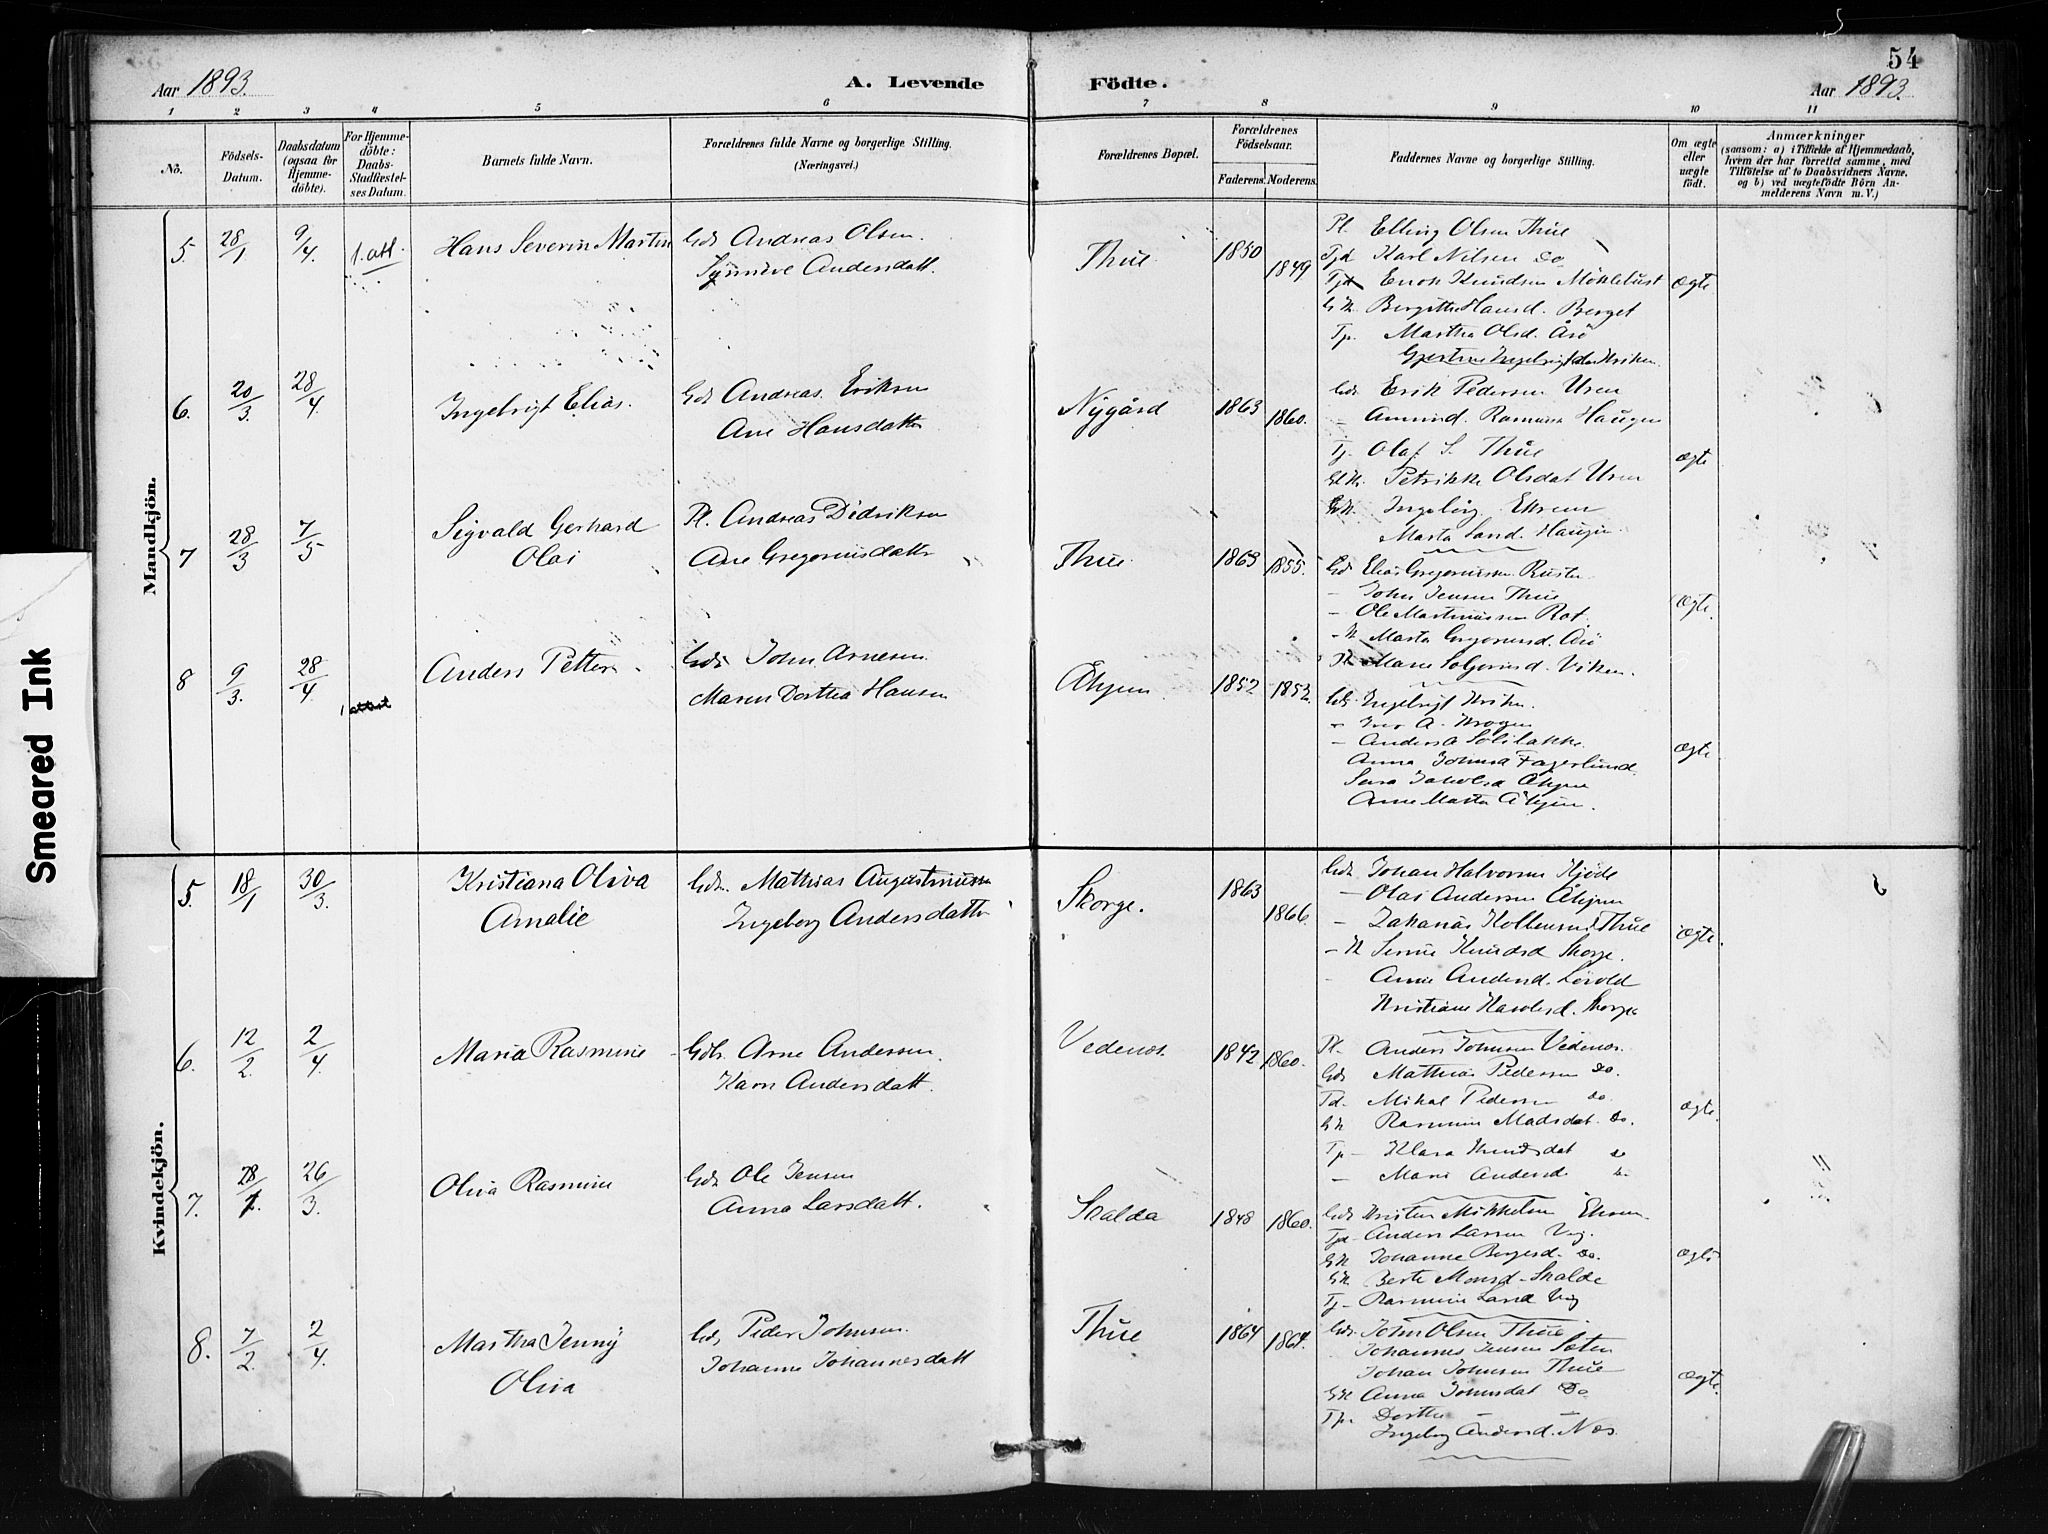 54
Aar 1893.
A. Levende Födte.
Aar 1893.
1 2 3 4 5 6 7 8 9 10 11
No.
Födsels-Datum.
Daabsdatum (ogsaa for Hjemme-döbte).
For Hjemme-döbte: Daabs-Stadfæstel-ses Datum.
Barnets fulde Navn.
Forældrenes fulde Navne og borgerlige Stilling. (Næringsvei.)
Forældrenes Bopæl.
Forældrenes Födselsaar.
Faderens. Moderens.
Faddernes Navne og borgerlige Stilling.
Om ægte eller uægte födt.
Anmærkninger
(saasom: a) i Tilfælde af Hjemmedaab,
hvem der har forrettet samme, med
Tilföielse af to Daabsvidners Navne,
og b) ved uægtefödte Börn An-
melderens Navn m. V.)
Smeared Ink
Mandkjön.
5. 28/1 9/4. 1. att. Hans Severin Martin
Gdr Andreas Olsen.
Synnöve Andersdatt.
Thue 1850 1849
Pl. Elling Olsen Thue
Tjd Karl Nilsen do
Tjd Enok Knudsen Möklebust
Gk. Bergitte Hansd. Berget
Tp. Martha Olsd. Årö
ægte
6. 20/3. 28/4. Ingebrigt Elias.
Gdr Andreas Eriksen
Ane Hansdatter
Nygård 1863 1860.
Gdr. Erik Pedersen Uren
Amund Rasmusen Haugen
Tj. Olaf S. Thue
Gk. Petrikke Olsdat Uren
Gk. Ingeborg Ekrem
Marta Haugen
ægte
7 28/3 7/5 Sigvald Gerhard
Olai
Pl. Andreas Didriksen
Ane Gregoriusdatter
Thue. 1863 1855.
Gdr Elias Gregoriussen Rusten
- John Jensen Thue
- Ole Martinussen Rot
- K Marta Gregoriusd. Årö
Viken.
ægte.
8 9/3. 28/4. 1 attest Anders Petter
Gdr John Arnesen.
Maren Dorthea Hansen
Åhjem 1852 1852.
Gdr. Ingebrigt Viken.
- Iver A. Krogen
- Anders A Solibakke.
Anna Johnsd Fagerlund.
Sara Jakobsd Åhjem
Anne Marta Åhjem.
ægte
Kvindekjön.
5. 18/1 30/3. Kristiana Oliva
Amalie
Gdr. Mathias Augustinussen
Ingeborg Andersdatter
Skorge. 1863 1866.
Gdr. Johan Halvorsen Hjöde
- Olai Andersen Åhjem
- Zakarias Kolbensen Thue
- K Knudsd Skorge.
Anne Andersd. Lövold
Kristiane Skorge
ægte.
6. 12/2. 2/4. Maria Rasmine
Gdr. Arne Andersen.
Karn Andersdatt.
Vedenos. 1842 1860.
Pl. Anders Johnsen Vedenos.
Gdr Mathias Pedersen do
Td. Mikal Pedersen do.
Gk Rasmine Madsdat. Do.
Tp - Klara Knudsdat do
- Marie Andersd do
ægte.
7. 28/1. 26/3. Oliva Rasmine
Gdr Ole Jensen
Anna Larsdatt.
Skalda 1848 1860.
Gdr Kristen Mikkelsen Ekrem.
Tjd Anders Larsen Vig.
Gk Johanne Bergesd. Do.
Gk. Berte Monsd - Skalde
Tj - Rasmine Larsd Vig
ægte
8. 7/2. 2/4. Martha Jenny
Oliva
Gdr Peder Johnsen.
Johanne Johannesdatt
Thue 1864 1864.
Gdr. John Olsen Thue
Johannes Jensen Sæter
Johan Johnsen Thue
Gk Anna Johnsdat Do
Tp. Dorthe
Ingeborg Andersd. Nos.
ægte.